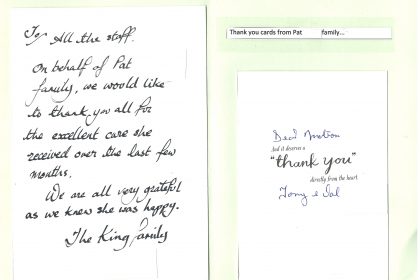 To All the staff.
On behalf of Pat
family, we would like
to thank you all for
the excellent care she
received over the last few
months.
We are all very grateful
as we knew she was happy.
The King family
Thank you cards from Pat family...
Dear Matron
And it deserves a
"thank you"
directly from the heart
Tony & Val